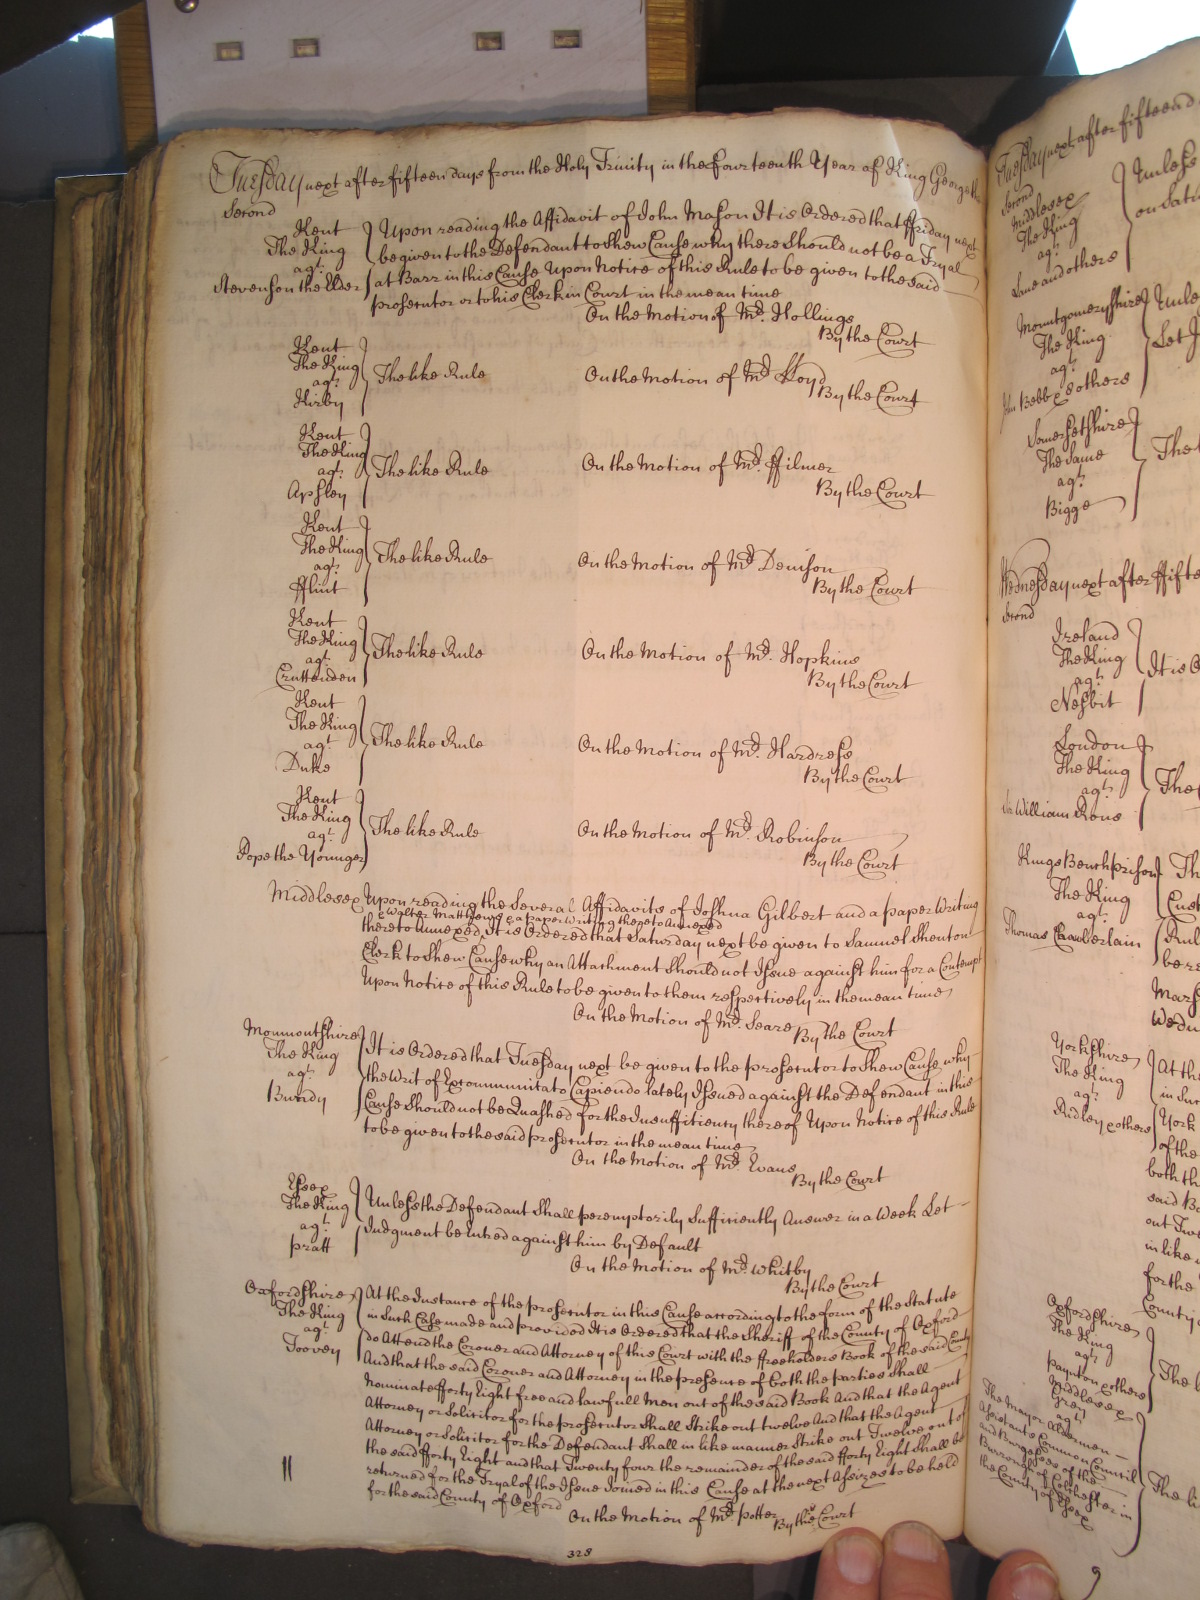 Tuesday next after fifteen days from the Holy Trinity in the Fourteenth Year of King George the
Second
Kent
The King
agt.
Stevenson the Elder
Upon reading the Affidavit of John Mason It is Ordered that ffriday next
be given to the Defendant to Shew Cause why there Should not be a Tryal
at Barr in this Cause Upon Notice of this Rule to be given to the said
prosecutor or to his Clerk in Court in the mean time
On the Motion of Mr. Hollings
By the Court
Kent
The King
agt.
Kirby
The like Rule
On the Motion of Mr. Lloyd
By the Court
Kent
The King
agt.
Apsley
The like Rule
On the Motion of Mr. ffilmer
By the Court
Kent
The King
agt.
fflint
The like Rule
On the Motion of Mr. Denison
By the Court
Kent
The King
agt.
Cruttenden
The like Rule
On the Motion of Mr. Hopkins
By the Court
Kent
The King
agt.
Duke
The like Rule
On the Motion of Mr. Hardress
By the Court
Kent
The King
agt.
Pope the Younger
The like Rule
On the Motion of Mr. Robinson
By the Court
Middlesex Upon reading the Several Affidavits of Joshua Gilbert and a paper Writing
& Walter Matthews & a paper Writing thereto Annexed
thereto Annexed It is Ordered that Saturday next be given to Samuel Shenton
Clerk to Shew Cause why an Attachment Should not Issue against him for a Contempt
Upon Notice of this Rule to be given to them respectively in the mean time
On the Motion of Mr. Seare
By the Court
Monmouthshire
The King
agt.
Bundy
It is Ordered that Tuesday next be given to the prosecutor to Shew Cause why
the Writ of Excommunicato Capiendo lately Issued against the Defendant in this
Cause Should not be Quashed for the Insufficiency thereof Upon Notice of this Rule
to be given to the said prosecutor in the mean time
On the Motion of Mr. Evans
By the Court
Essex
The King
agt.
pratt
Unless the Defendant Shall peremptorily Sufficiently Answer in a Week Let
Judgment be Entred against him by Default
On the Motion of Mr. Whitby
By the Court
Oxfordshire
The King
agt.
Toovey
At the Instance of the prosecutor in this Cause according to the form of the Statute
in Such Case made and provided It is Ordered that the Sheriff of the County of Oxford
do Attend the Coroner and Attorney of this Court with the ffreeholders Book of the said County
And that the said Coroner and Attorney in the presence of both the parties Shall
Nominate fforty Eight free and lawfull Men out of the said Book And that the Agent
Attorney or Solicitor for the prosecutor Shall Strike out twelve And that the Agent
Attorney or Solicitor for the Defendant Shall in like manner Strike out Twelve out of
the said fforty Eight and that Twenty four the remainder of the said fforty Eight Shall be
returned for the Tryal of the Issue Joined in this Cause at the next Assizes to be held
for the said County of Oxford
On the Motion of Mr. potter
By the Court
328
Tuesday next after fifteen d
Second
Middlesex
The King
agt.
Lane and others
Unless
on Satu
Montgomeryshire
The King
agt.
John Bebb & others
Unle
Let J
Somersetshire
The Same
agt.
Bigge
The
Wednesday next after ffifte
Second
Ireland
The King
agt.
Nesbit
It is O
London
The King
agt.
Sir William Rous
The
Kings Bench prison
The King
agt.
Thomas Chamberlain
Th
Cust
Rul
be re
Mars
Wedn
Yorkshire
The King
agt.
Ridley & others
At the
in Suc
York
of the
both th
said Bo
out Twe
in like
for the
County
Oxfordshire
The King
agt.
paynton & others
The l
Middlesex
Grey
agt.
The Mayor Aldermen
Assistants Common Council
and Burgesses of the
Burrough of Colchester in
the County of Essex
The li